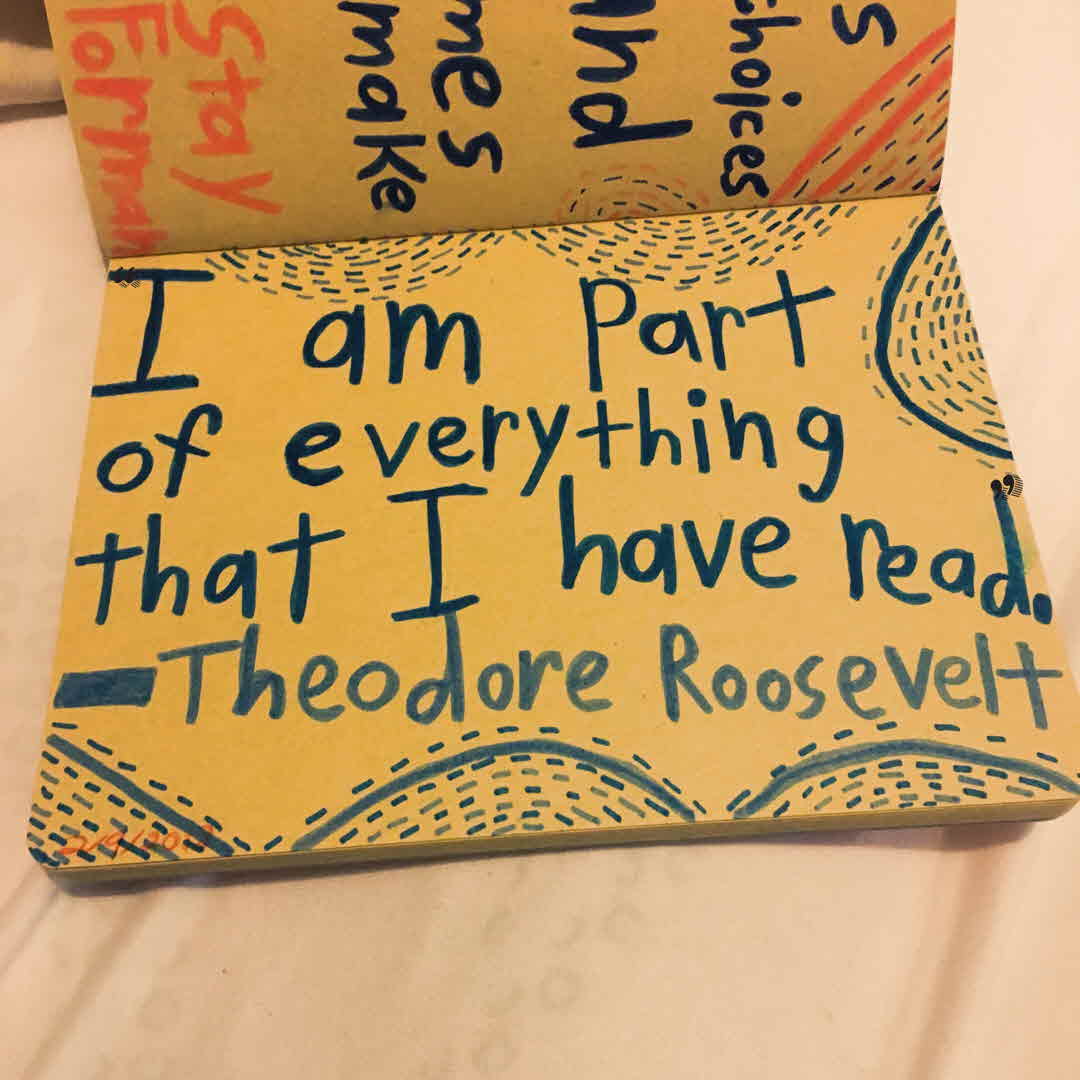 Stay
make
mes
choices
s
“I am Part
of everything
that I have read.”
-Theodore Roosevelt